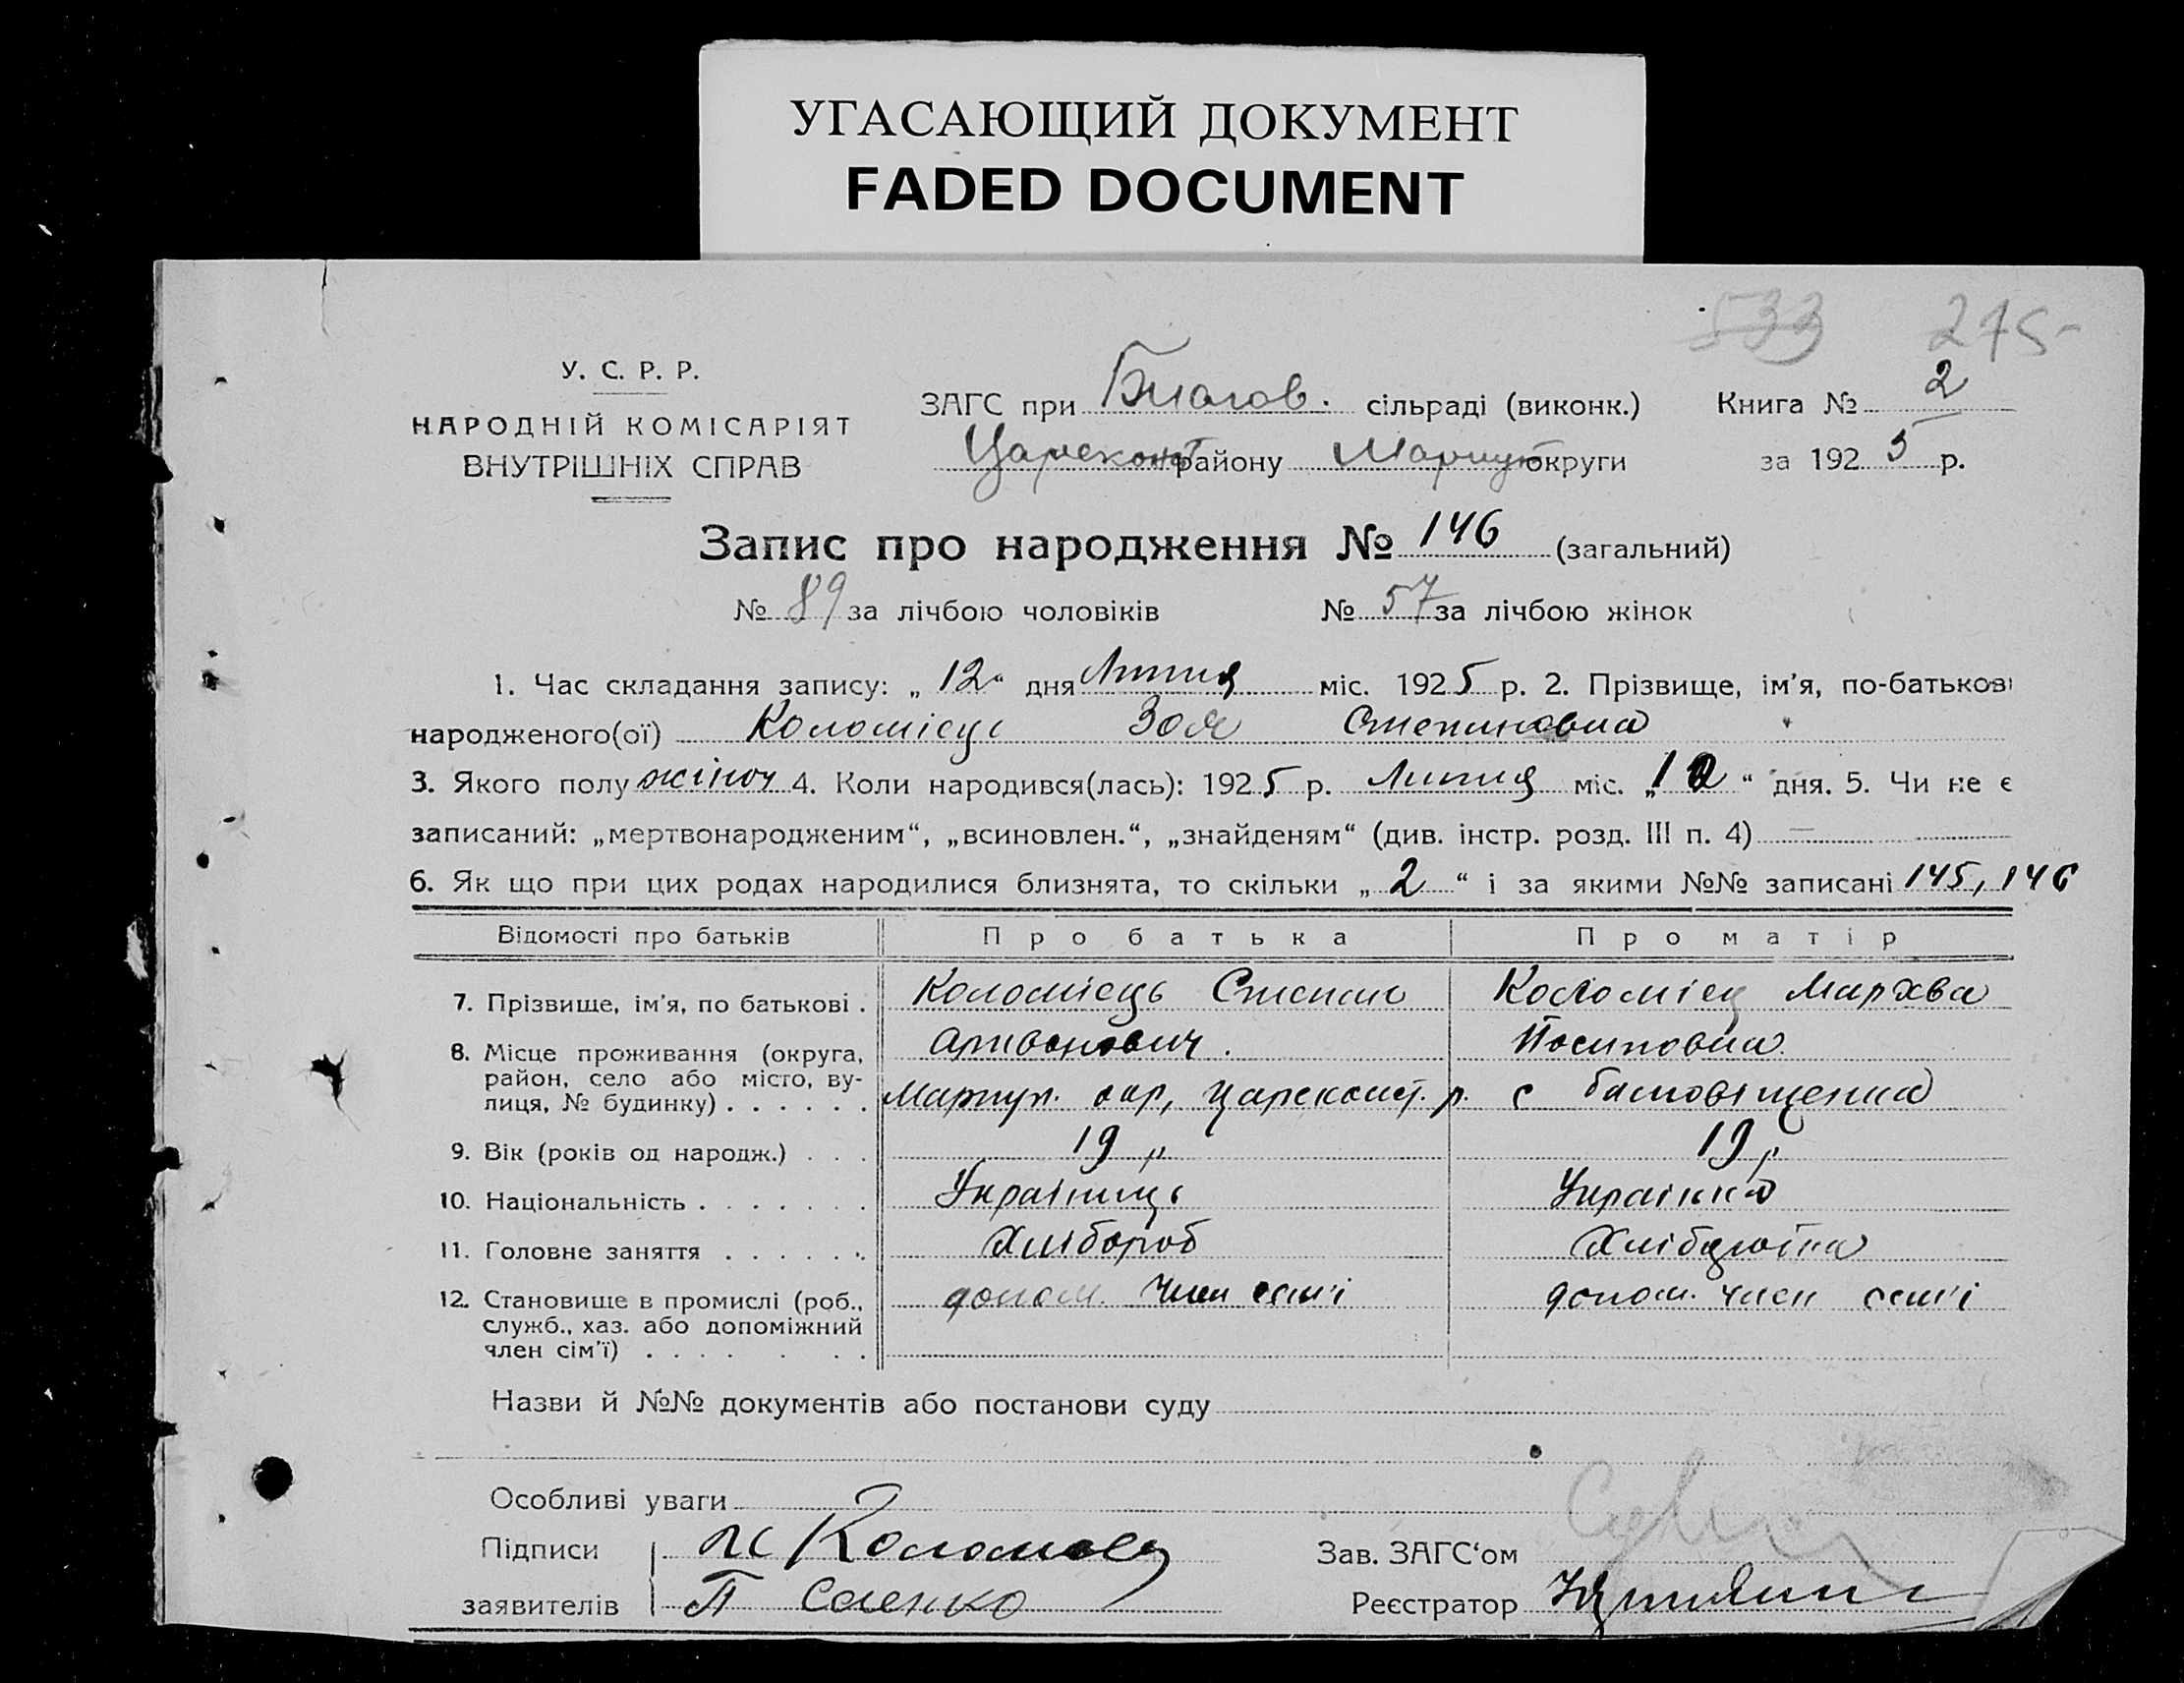 УГАСАЮЩИЙ ДОКУМЕНТ
FADED DOCUMENT
533 275-
У. С. Р. Р.
НАРОДНІЙ КОМІСАРІЯТ
ВНУТРІШНІХ СПРАВ
ЗАГС при Благов. сільраді (виконк.) Книга № 2
Царекон району Маріуп округи за 1925 р.
Запис про народження № 146 (загальний)
№ 89 за лічбою чоловіків № 57 за лічбою жінок
1. Час складання запису: „12“ дня Липня міс. 1925 р. 2. Прізвище, ім’я, по-батькові
народженого(ої) Коломієць Зоя Степановна
3. Якого полу жіноч 4. Коли народився(лась): 1925 р. Липня міс. „10“ дня. 5. Чи не є
записаний: „мертвонародженим“, „всиновлен.“, „знайденям“ (див. інстр. розд. III п. 4) —
6. Як що при цих родах народилися близнята, то скільки „2“ і за якими №№ записані 145, 146
Відомості про батьків Про батька Про матір
7. Прізвище, ім’я, по батькові . Коломієць Степан Коломіец Мархва
Йосиповна
8. Місце проживання (округа,
район, село або місто, ву-
лиця, № будинку) . . . . . . Марiуп. окр, Цареконст. р. с
9. Вік (років од народж.) . . . 19 р 19 р
10. Національність . . . . . . . Українець Українка
11. Головне заняття . . . . . . Хлібороб
12. Становище в промислі (роб., допом. член сем'і допом. член сем'і
служб., хаз. або допоміжний
член сім’ї) . . . . . . .
Назви й №№ документів або постанови суду
Особливі уваги
Підписи Коломоец Зав. ЗАГС‘ом
заявителів П Саенко Реєстратор